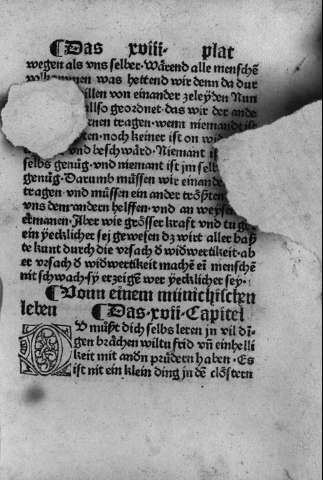 Das xviii· plat
wegen als vns selber·Wärend alle menschē
was hettend wir denn da dur
illen von einander zeleyden Nun
allso geordnet·das wir der ande
ernen tragen·wenn niemand
ten·noch keiner ist on
vnd beschwärd·Niemant
selbs genůg·vnd niemant ist jm selb
genůg·Darumb můssen wir einande
tragen·vnd můssen ein ander trösten
vns dem andern helffen·vnd an weysen
ermanen·Aber wie grösser krafft vnd tugen
ein yecklicher sej gewesen dz wirt aller baß
te kunt durch die vrsach d widwertikeit·ab
er vrsach d widwertikeit machē eī menschē
nit schwach·sy erzeigē wer yecklicher sey·
Vonn einem münichischen
leben Das·xvii·Capitel
DV můßt dich selbs leren in vil dī
gen brächen wiltu frid vn̄ einhelli
keit mit andn prüdern haben·Es
ist nit ein klein ding jn dē clöstern